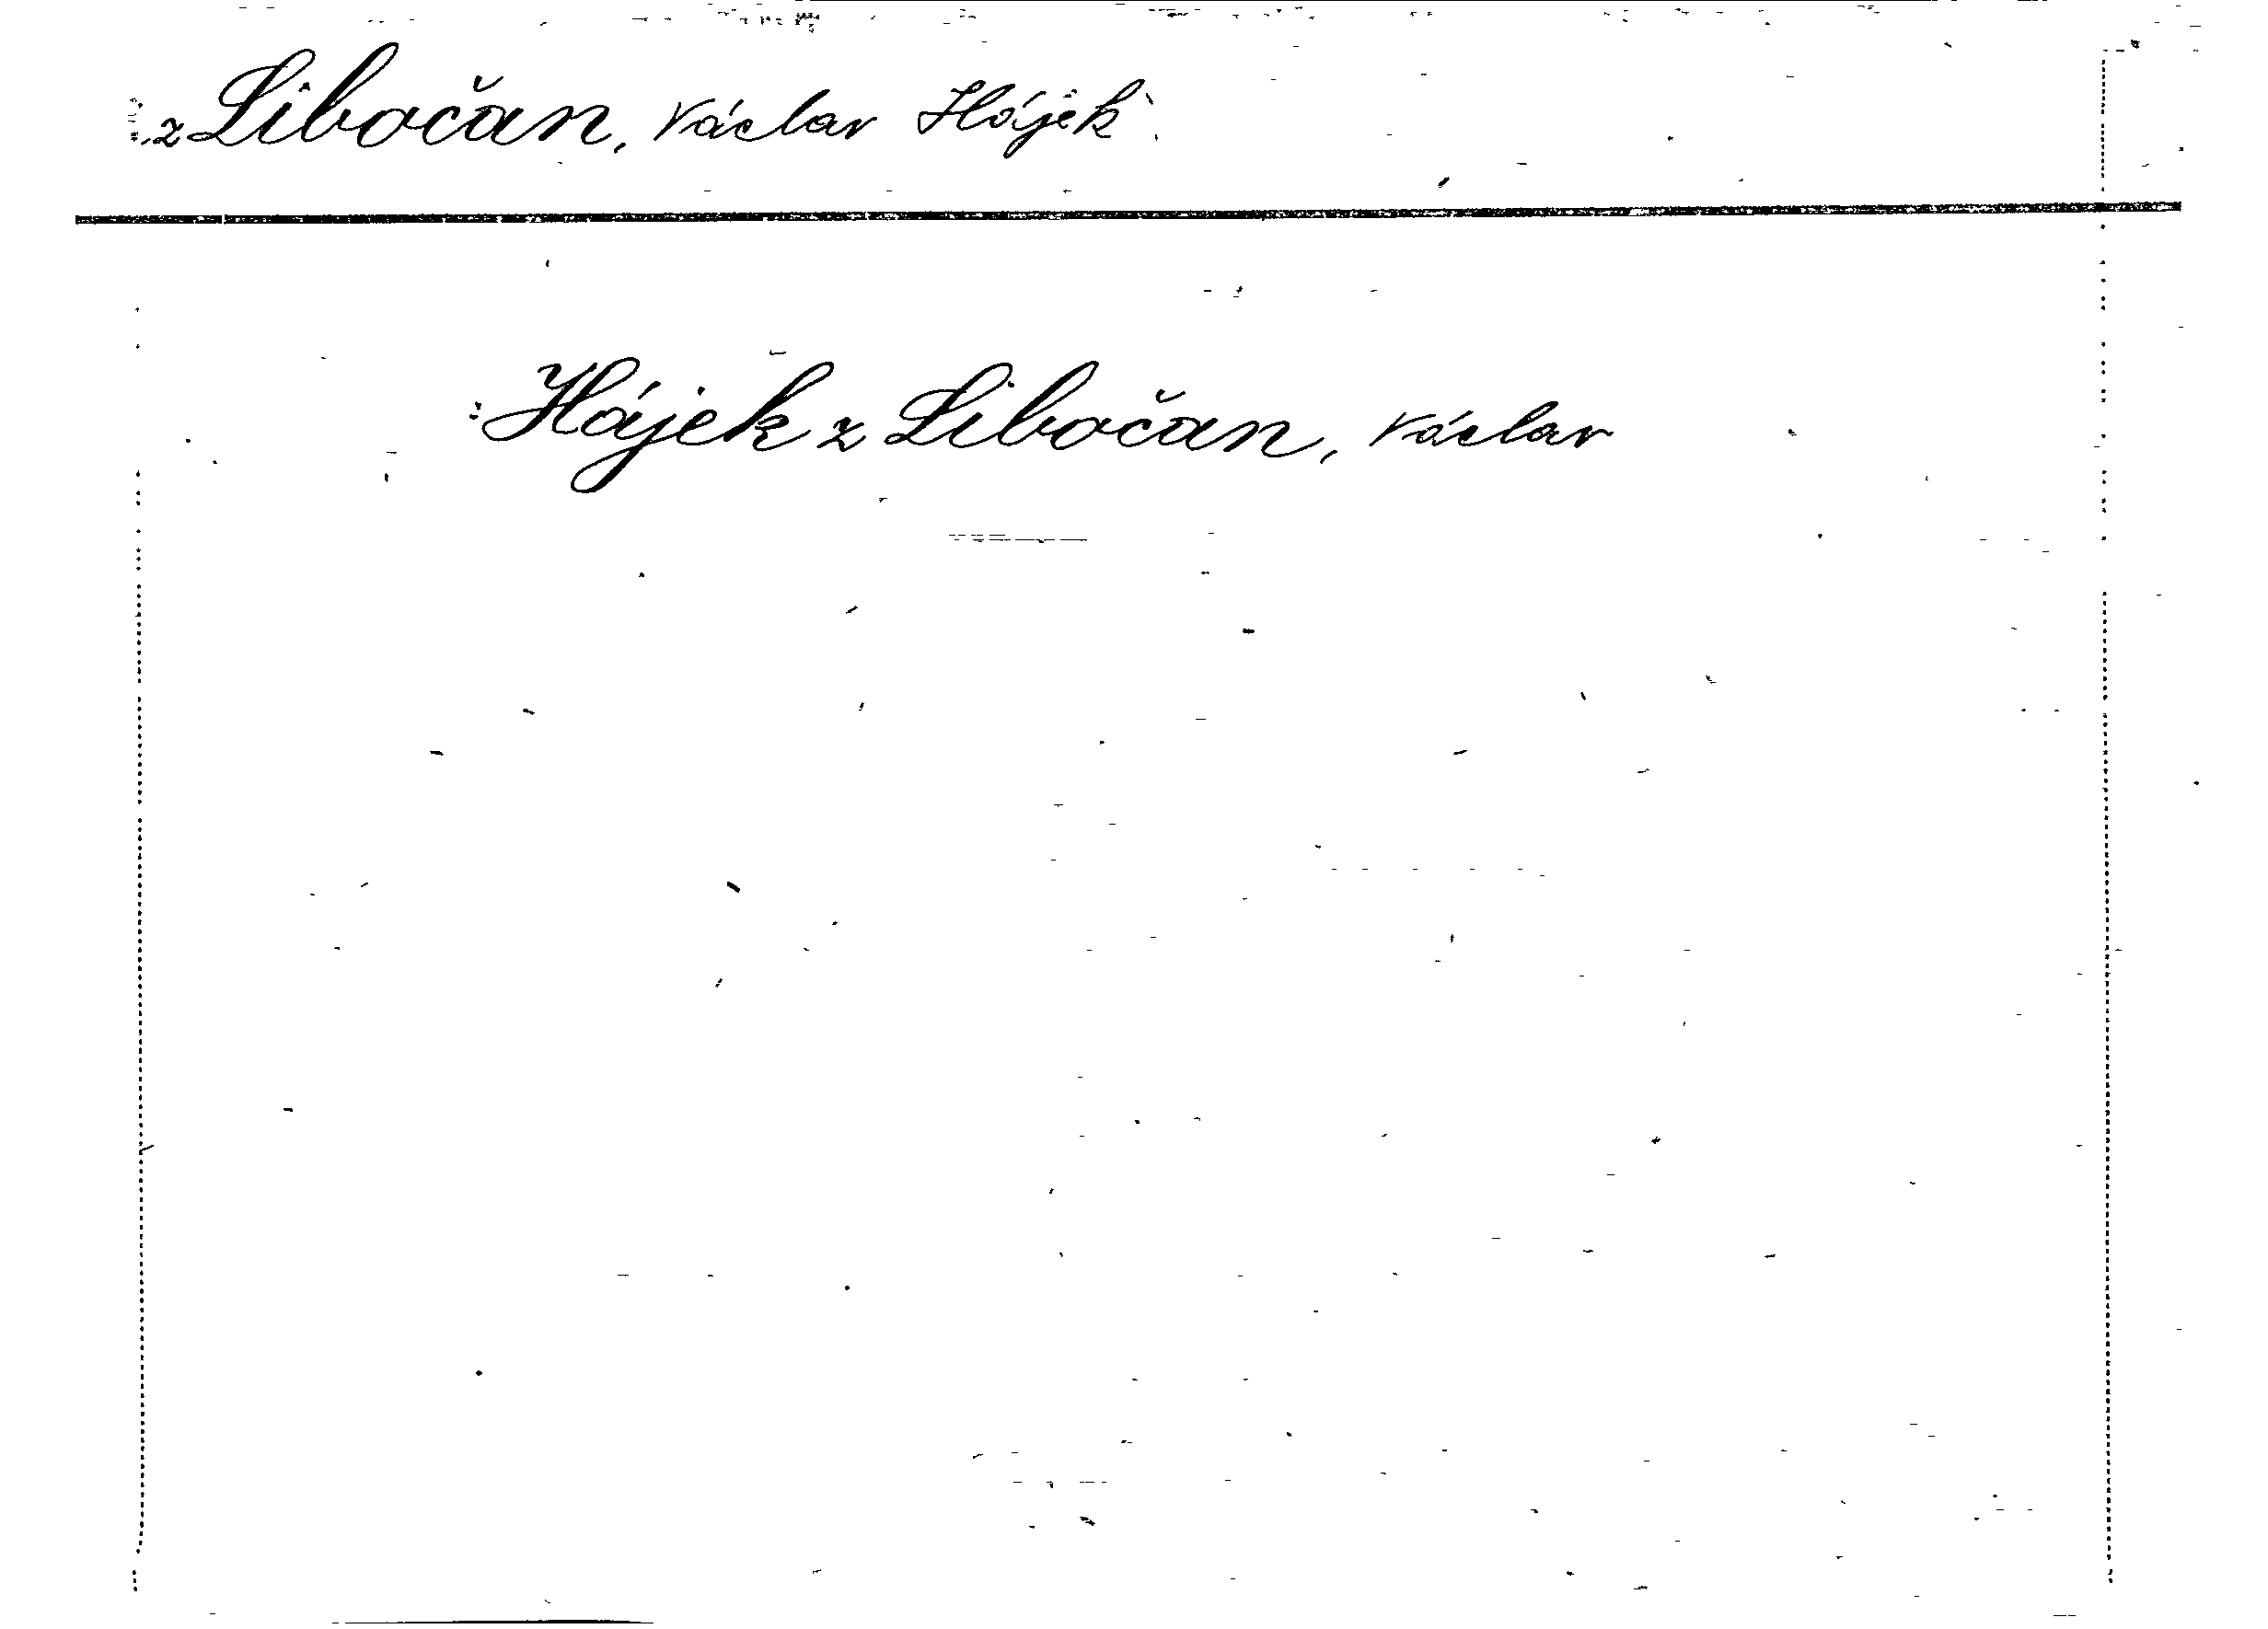 z Libočan, Václav Hájek
Hájek z Libočan, Václav